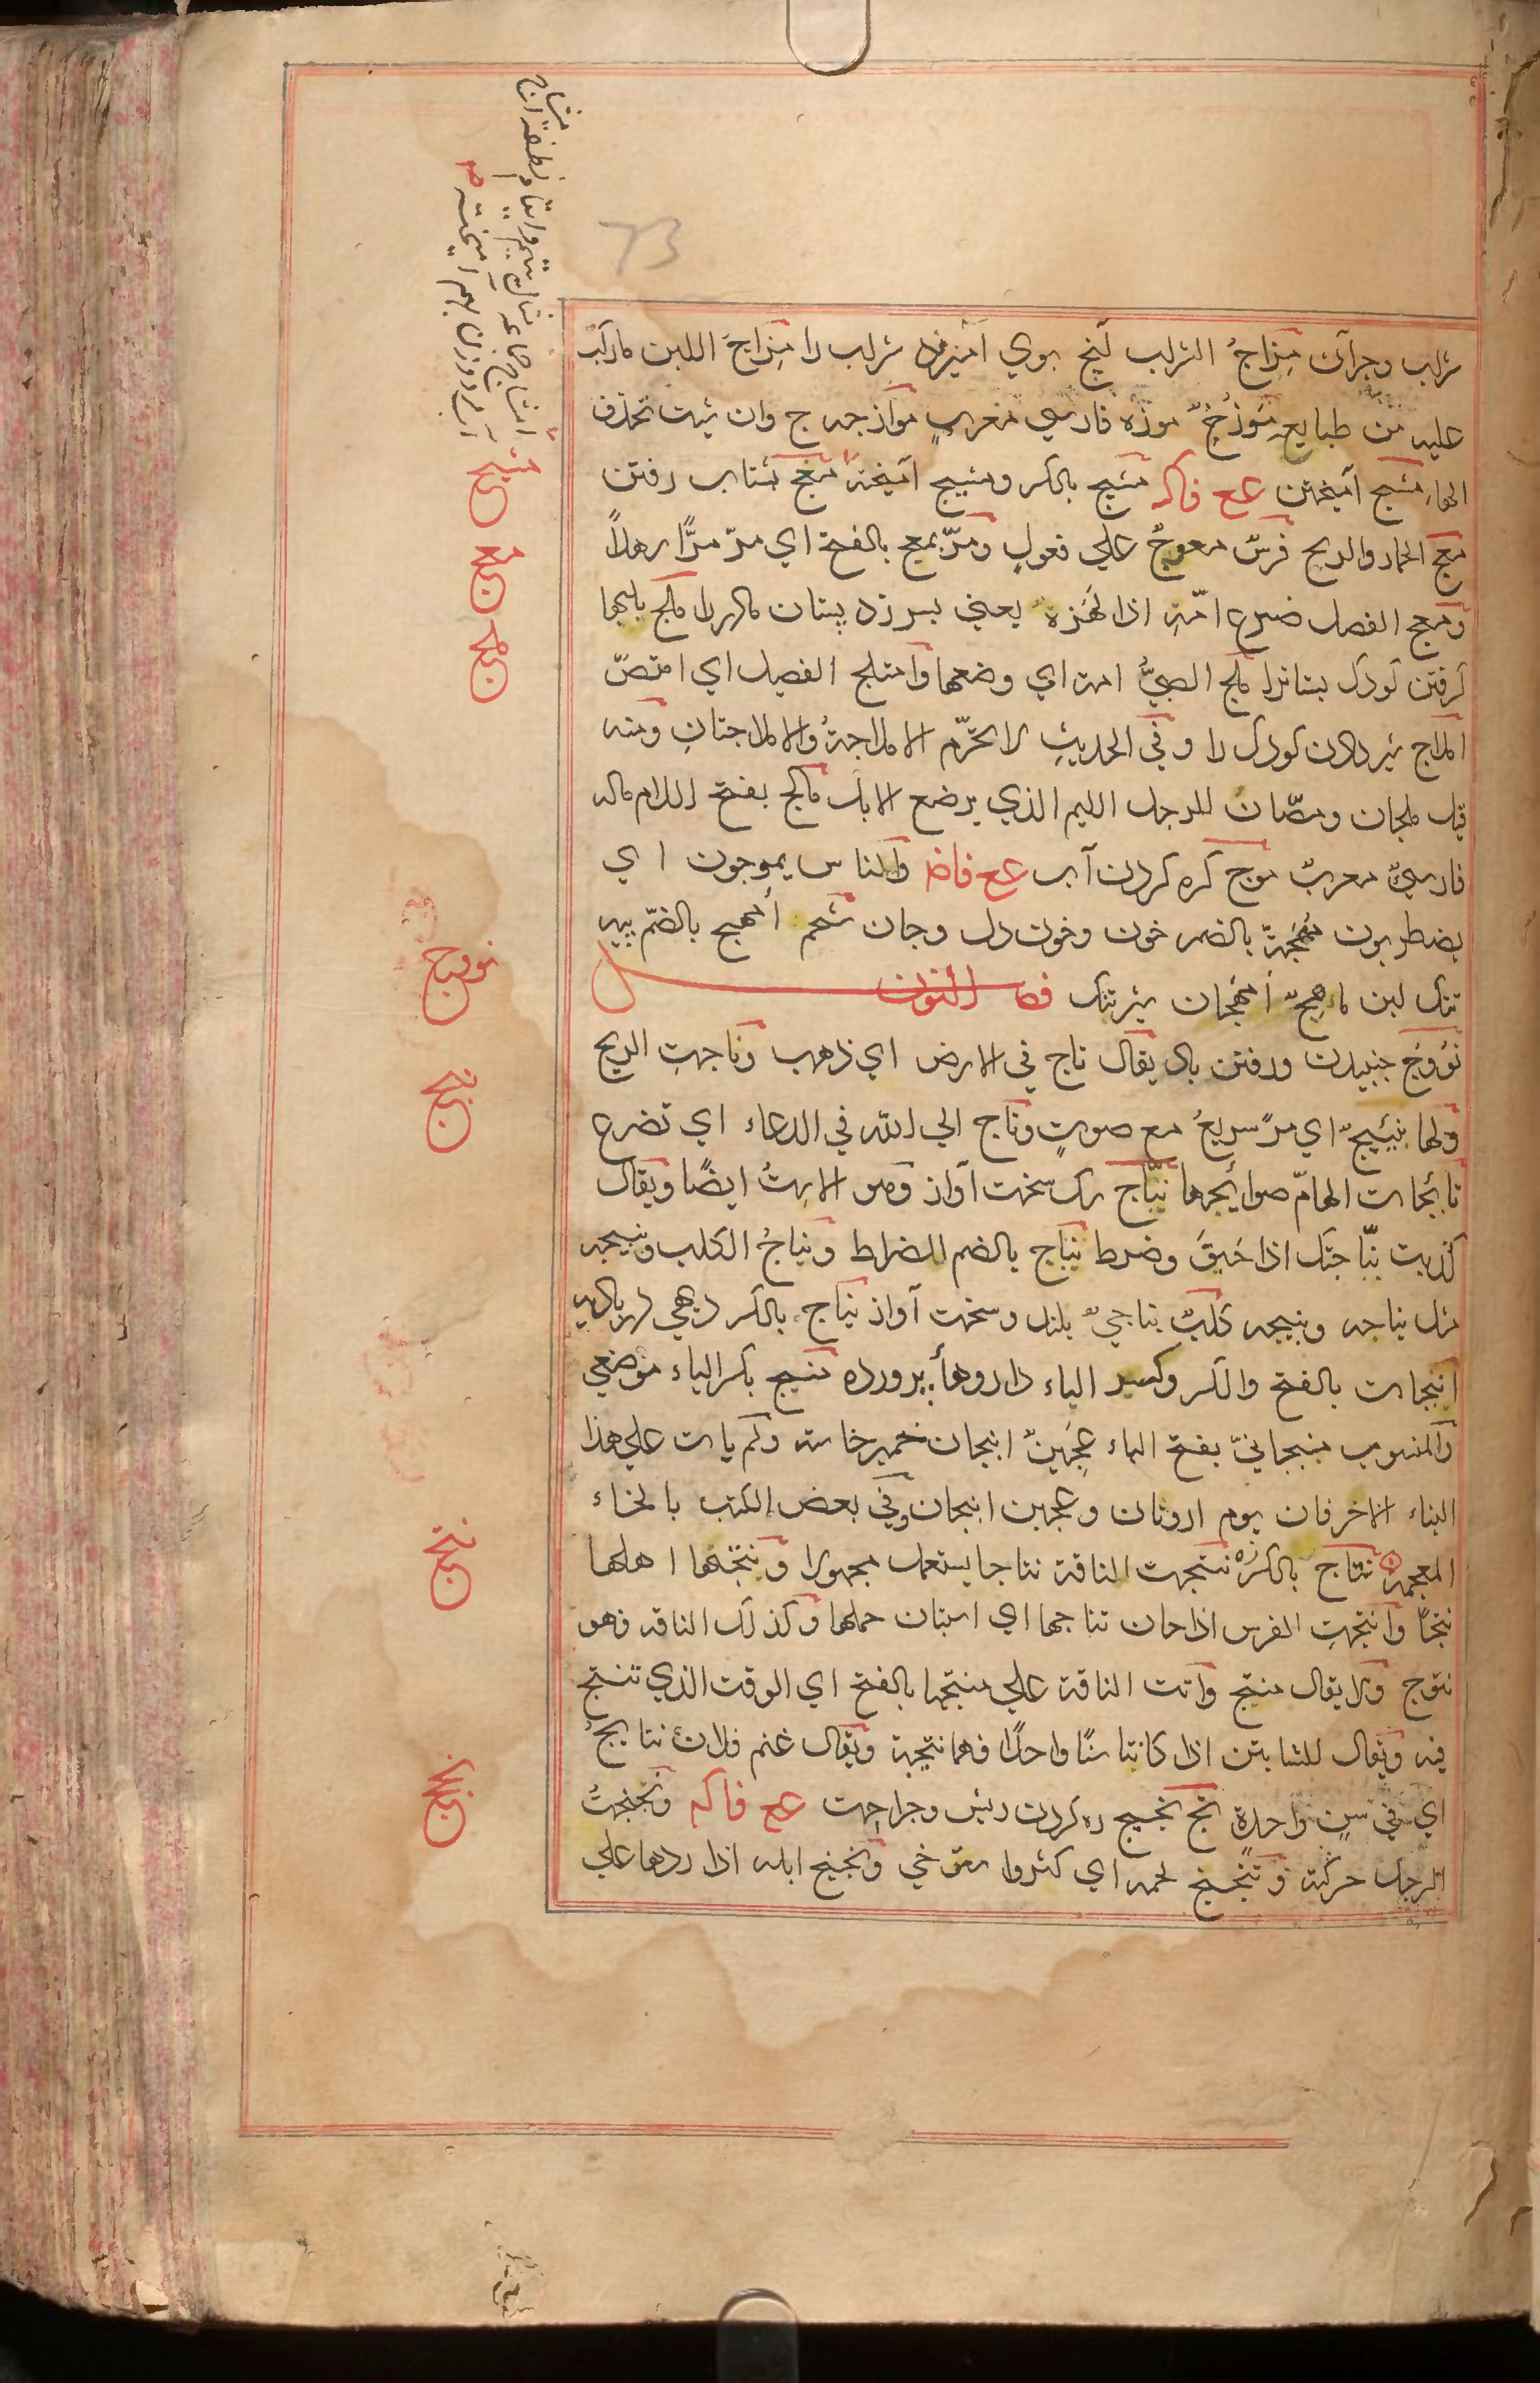 شراب وجزآن مِزاجُ الشراب آنچ بوي آميزند شراب را مِزاجُ اللبن ماركّب
عليه من طبايع مَوْزَجٌ موزه فارسي معرب موازجه ج وان شيت تحذف
الهاء مشج آميختن ع ع فاكـ مشيج بالكسر ومشيج آميخته معج بشتاب رفتن
معج الحمار والريح فرسٌ معوجٌ علي فعولٍ ومرّ يمعج بالفتح اي مرّ مرًّا سهلاً
ومعج الفصل ضرع امّه اذا لهزه يعني بسر زد پستان مادر را ملج بلبها
گرفتن كودك پستانرا ملج الصبيُّ امه اي رضعها وامتلج الفصيل اي امتصّ
املاج شير دادن كودك را وفي الحديث لا تحرّم الاملاجةُ والاملاجتانِ ومنه
قيل ملجان ومصّان للرجل اللئيم الذي يرضع الابل مالج بفتح اللام ماله
فارسيٌّ معربٌ موج كره كردن آب ع ع فاض والناس يموجون اي
يضطربون مُهْجةٌ بالضم خون وخون دل وجان شحم أمهج بالضمّ پيه
تنك لبن ماهجٌ أمهجان شير تنك فصل النون
نؤوج جنبيدن ورفتن باد يقال ناج في الارض اي ذهب وناجت الريح
ولها نئيجٌ اي مرّ سريعٌ مع صوتٍ وناج الي الله في الدعاء اي تضرع
نائجات الهامّ صوائحها نبّاج سك سخت آواز وهو الاست ايضًا ويقال
كذبت نبّاجتك اذا حبق وضرط نباج بالضم الضراط ونباجُ الكلب ونبيجه
مثل نباحه ونبيحه كلبٌ نباجيٌّ بلند وسخت آواز نباج بالكسر ديهي در باديه
انبجات بالفتح والكسر وكسر الباء داروهاء پرورده منبج بكسر الباء موضعي
والمنسوب منبجانيّ بفتح الباء عجينٌ انبجان خمير خاسته ولم يات علي هذا
البناء الا حرفان يوم ارونان وعجين انبجان وفي بعض الكتب بالخاء
المعجمة نتاج بالكسر زه نتجت الناقة نتاجا يستعمل مجهولا ونتجها اهلها
نتجًا وانتجتِ الفرس اذا حان نتاجها اي استبان حملها وكذلك الناقه فهو
نتوج ولا يقال منتج واتت الناقة علي منتجها بالفتح اي الوقت الذي تنتج
فيه ويقال للشاتين اذا كانتا سنًّا واحدًا فهما نتيجة ويقال غنم فلان نتايجُ
اي في سنٍ واحدة نج نجيج ره كردن ريش وجراحت ع ع فاكـ ونجنجتُ
الرجل حركته وتنجنج لحمه اي كثر واسترخي ونجنج ابله اذا ردها علي
مشج
معج
ملج
نووج
نبج
نتج
نجنج
73